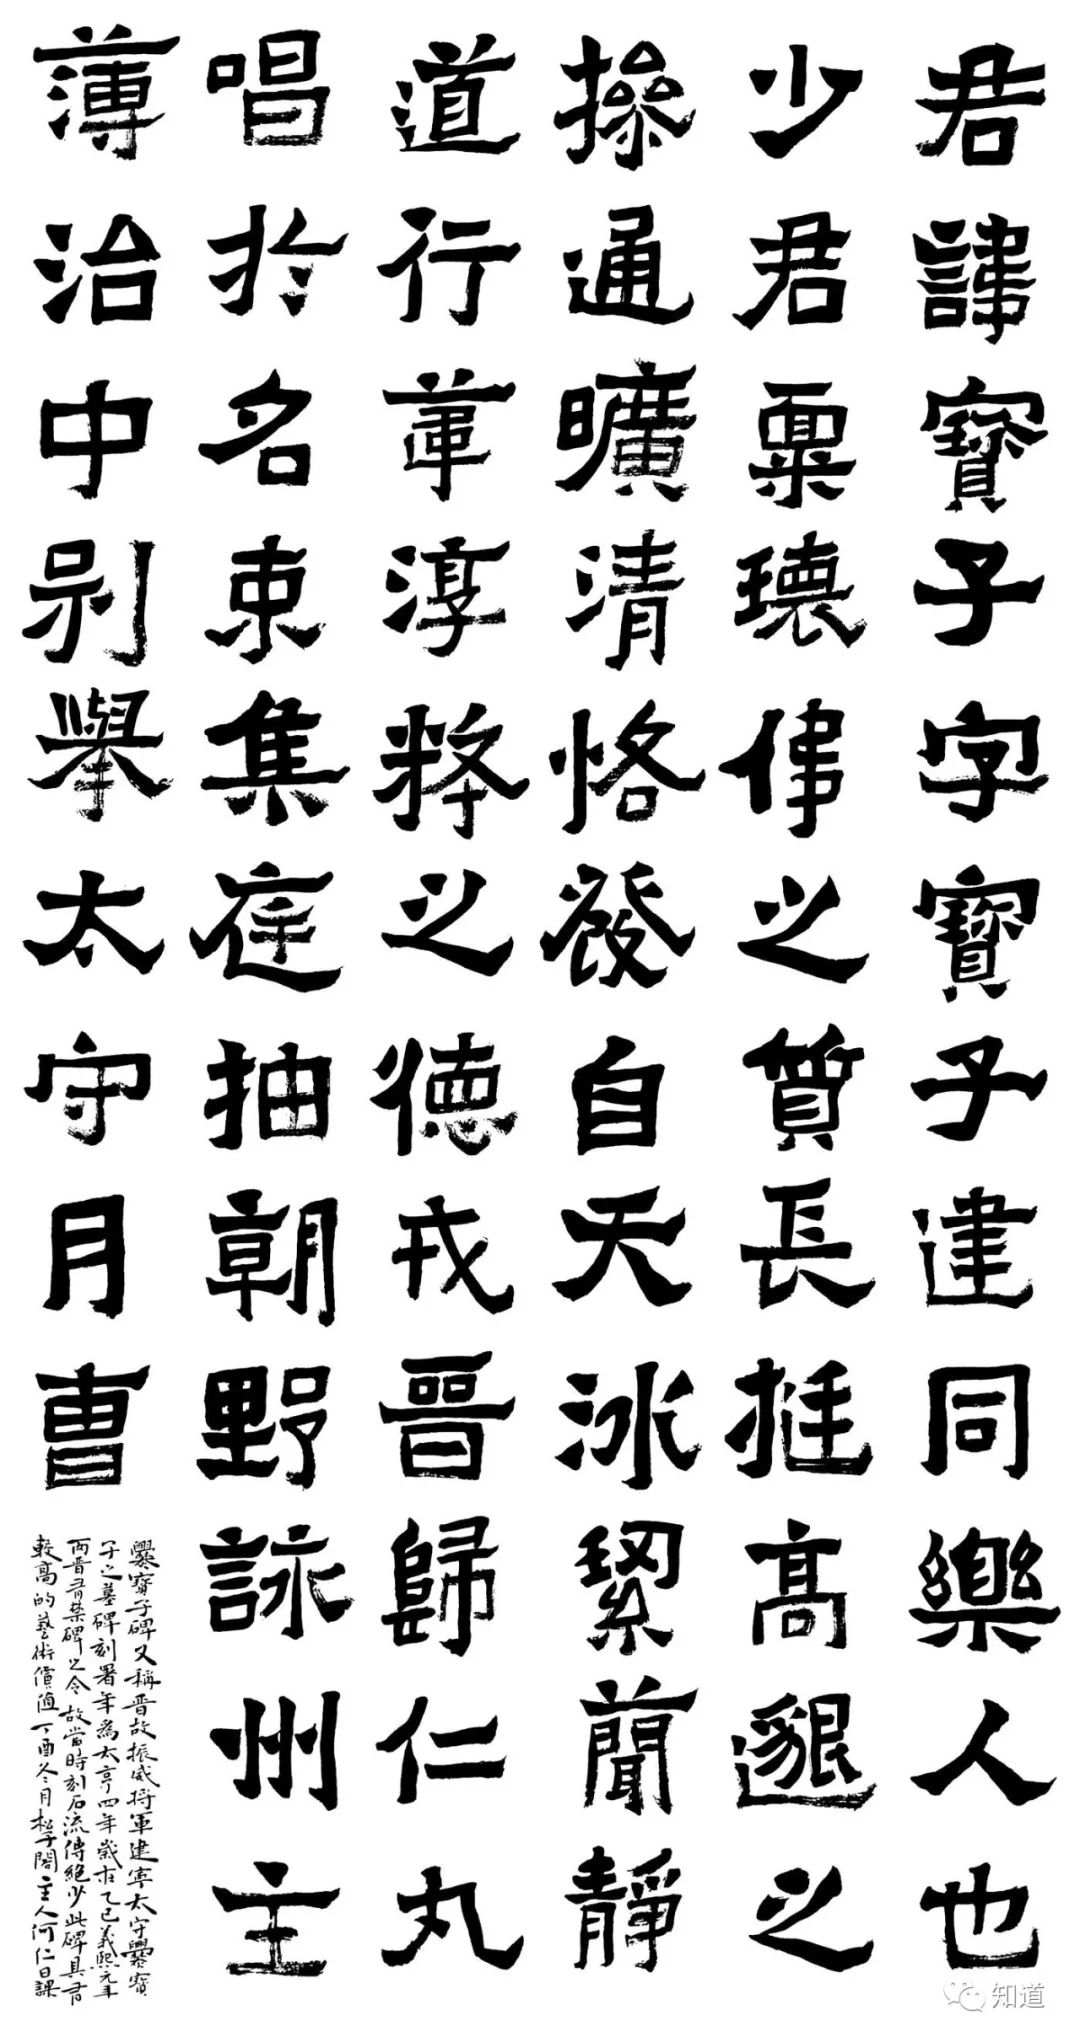 君諱寶子字寶子建同樂人也
少君稟瓌偉之質長挺高邈之
操通曠清恪發自天冰絜簡靜
道行葦淳粹之德戎晉歸仁丸
唱於名束集庭抽朝野詠州主
薄治中別舉太守月曹
爨寶子碑又稱晉故振威將軍建寧太守爨寶
子之墓碑刻署年為太亨四年歲在乙巳義熙元年
兩晉有禁碑之令故當時刻石流傳絕少此碑具有
較高的藝術價值丁酉冬月松子閣主人何仁日課
知道